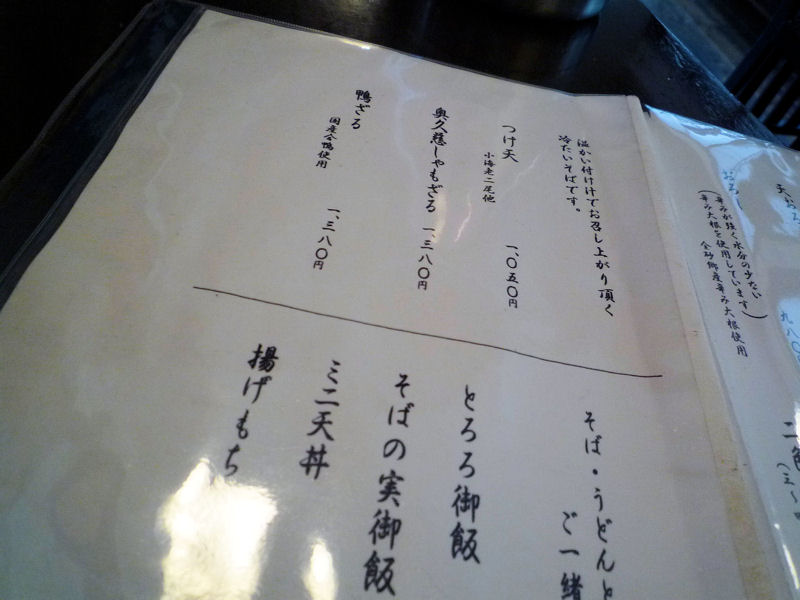 天おろ
九八〇
おろし
(辛みが強く水分の少ない
辛み大根を使用しています)
金砂郷産辛み大根使用
二色
温かい付け汁でお召し上がり頂く
冷たいそばです。
つけ天
小海老二尾他
一、〇五〇円
奥久慈しゃもざる 一、三八〇円
鴨ざる
国産合鴨使用
一、三八〇円
そば・うどんと
ご一緒
とろろ御飯
そばの実御飯
ミニ天丼
揚げもち